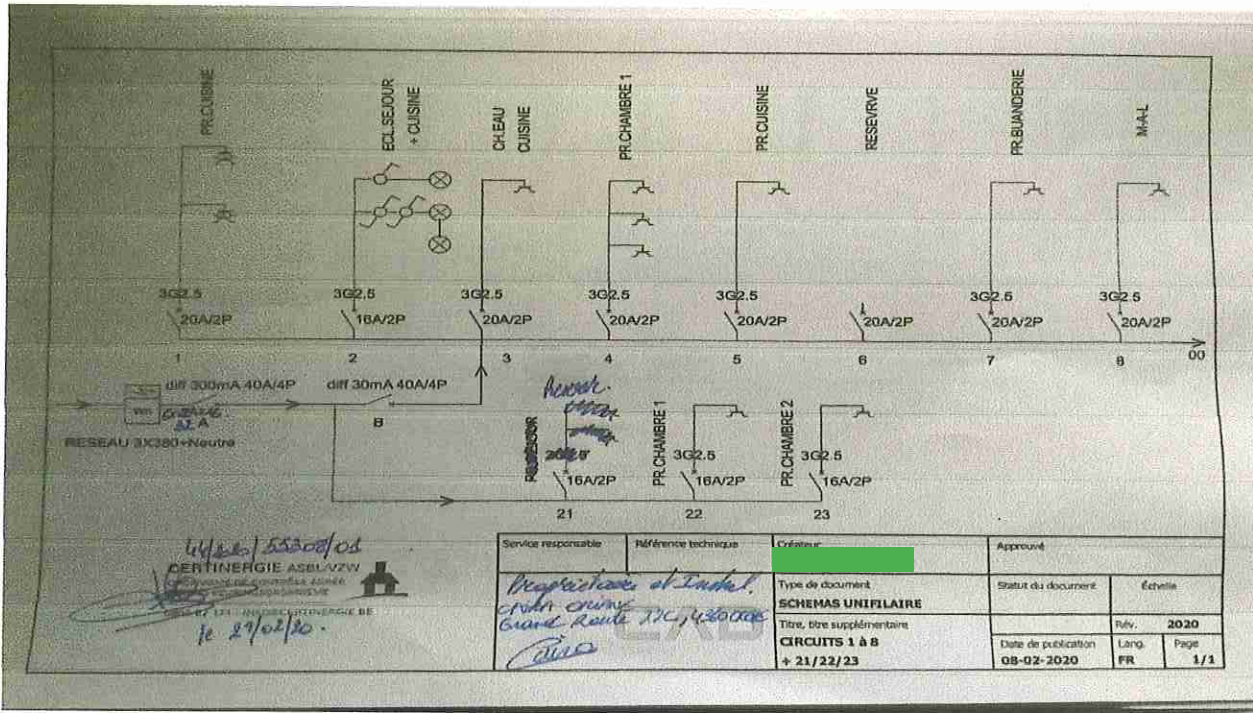 PR.CUISINE
ECL.SEJOUR
+ CUISINE
CH.EAU
CUISINE
PR.CHAMBRE 1
PR.CUISINE
RESEVRVE
PR.BUANDERIE
M-A-L
3G2.5
3G2.5
3G2.5
3G2.5
3G2.5
3G2.5
3G2.5
20A/2P
16A/2P
20A/2P
20A/2P
20A/2P
20A/2P
20A/2P
20A/2P
1
2
3
4
5
6
7
8
00
diff 300mA 40A/4P
diff 30mA 40A/4P
32 A
B
RESEAU 3X380+Neutre
PR.CHAMBRE 1
PR.CHAMBRE 2
3G2.5
3G2.5
16A/2P
16A/2P
16A/2P
21
22
23
CERTINERGIE ASBL/VZW
le 27/02/20.
Service responsable
Référence technique
Créateur
Approuvé
Propriétaire et Instal.
Grand Route
Type de document
SCHEMAS UNIFILAIRE
Statut du document
Échelle
Titre, titre supplémentaire
CIRCUITS 1 à 8
+ 21/22/23
Rév.
2020
Date de publication
08-02-2020
Lang.
FR
Page
1/1